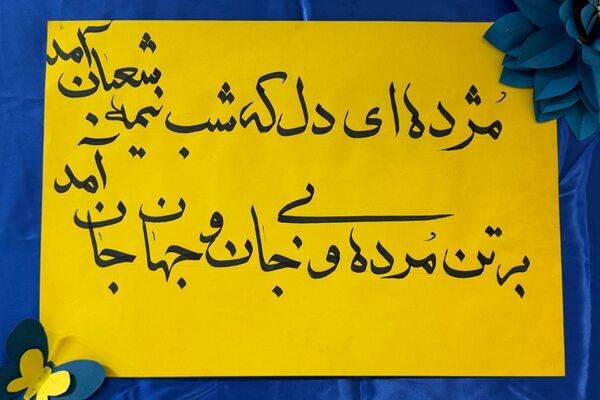 مُژده ای دل که شب نیمه شعبان آمد
بر تن مُرده و بی جان و جهان جان آمد